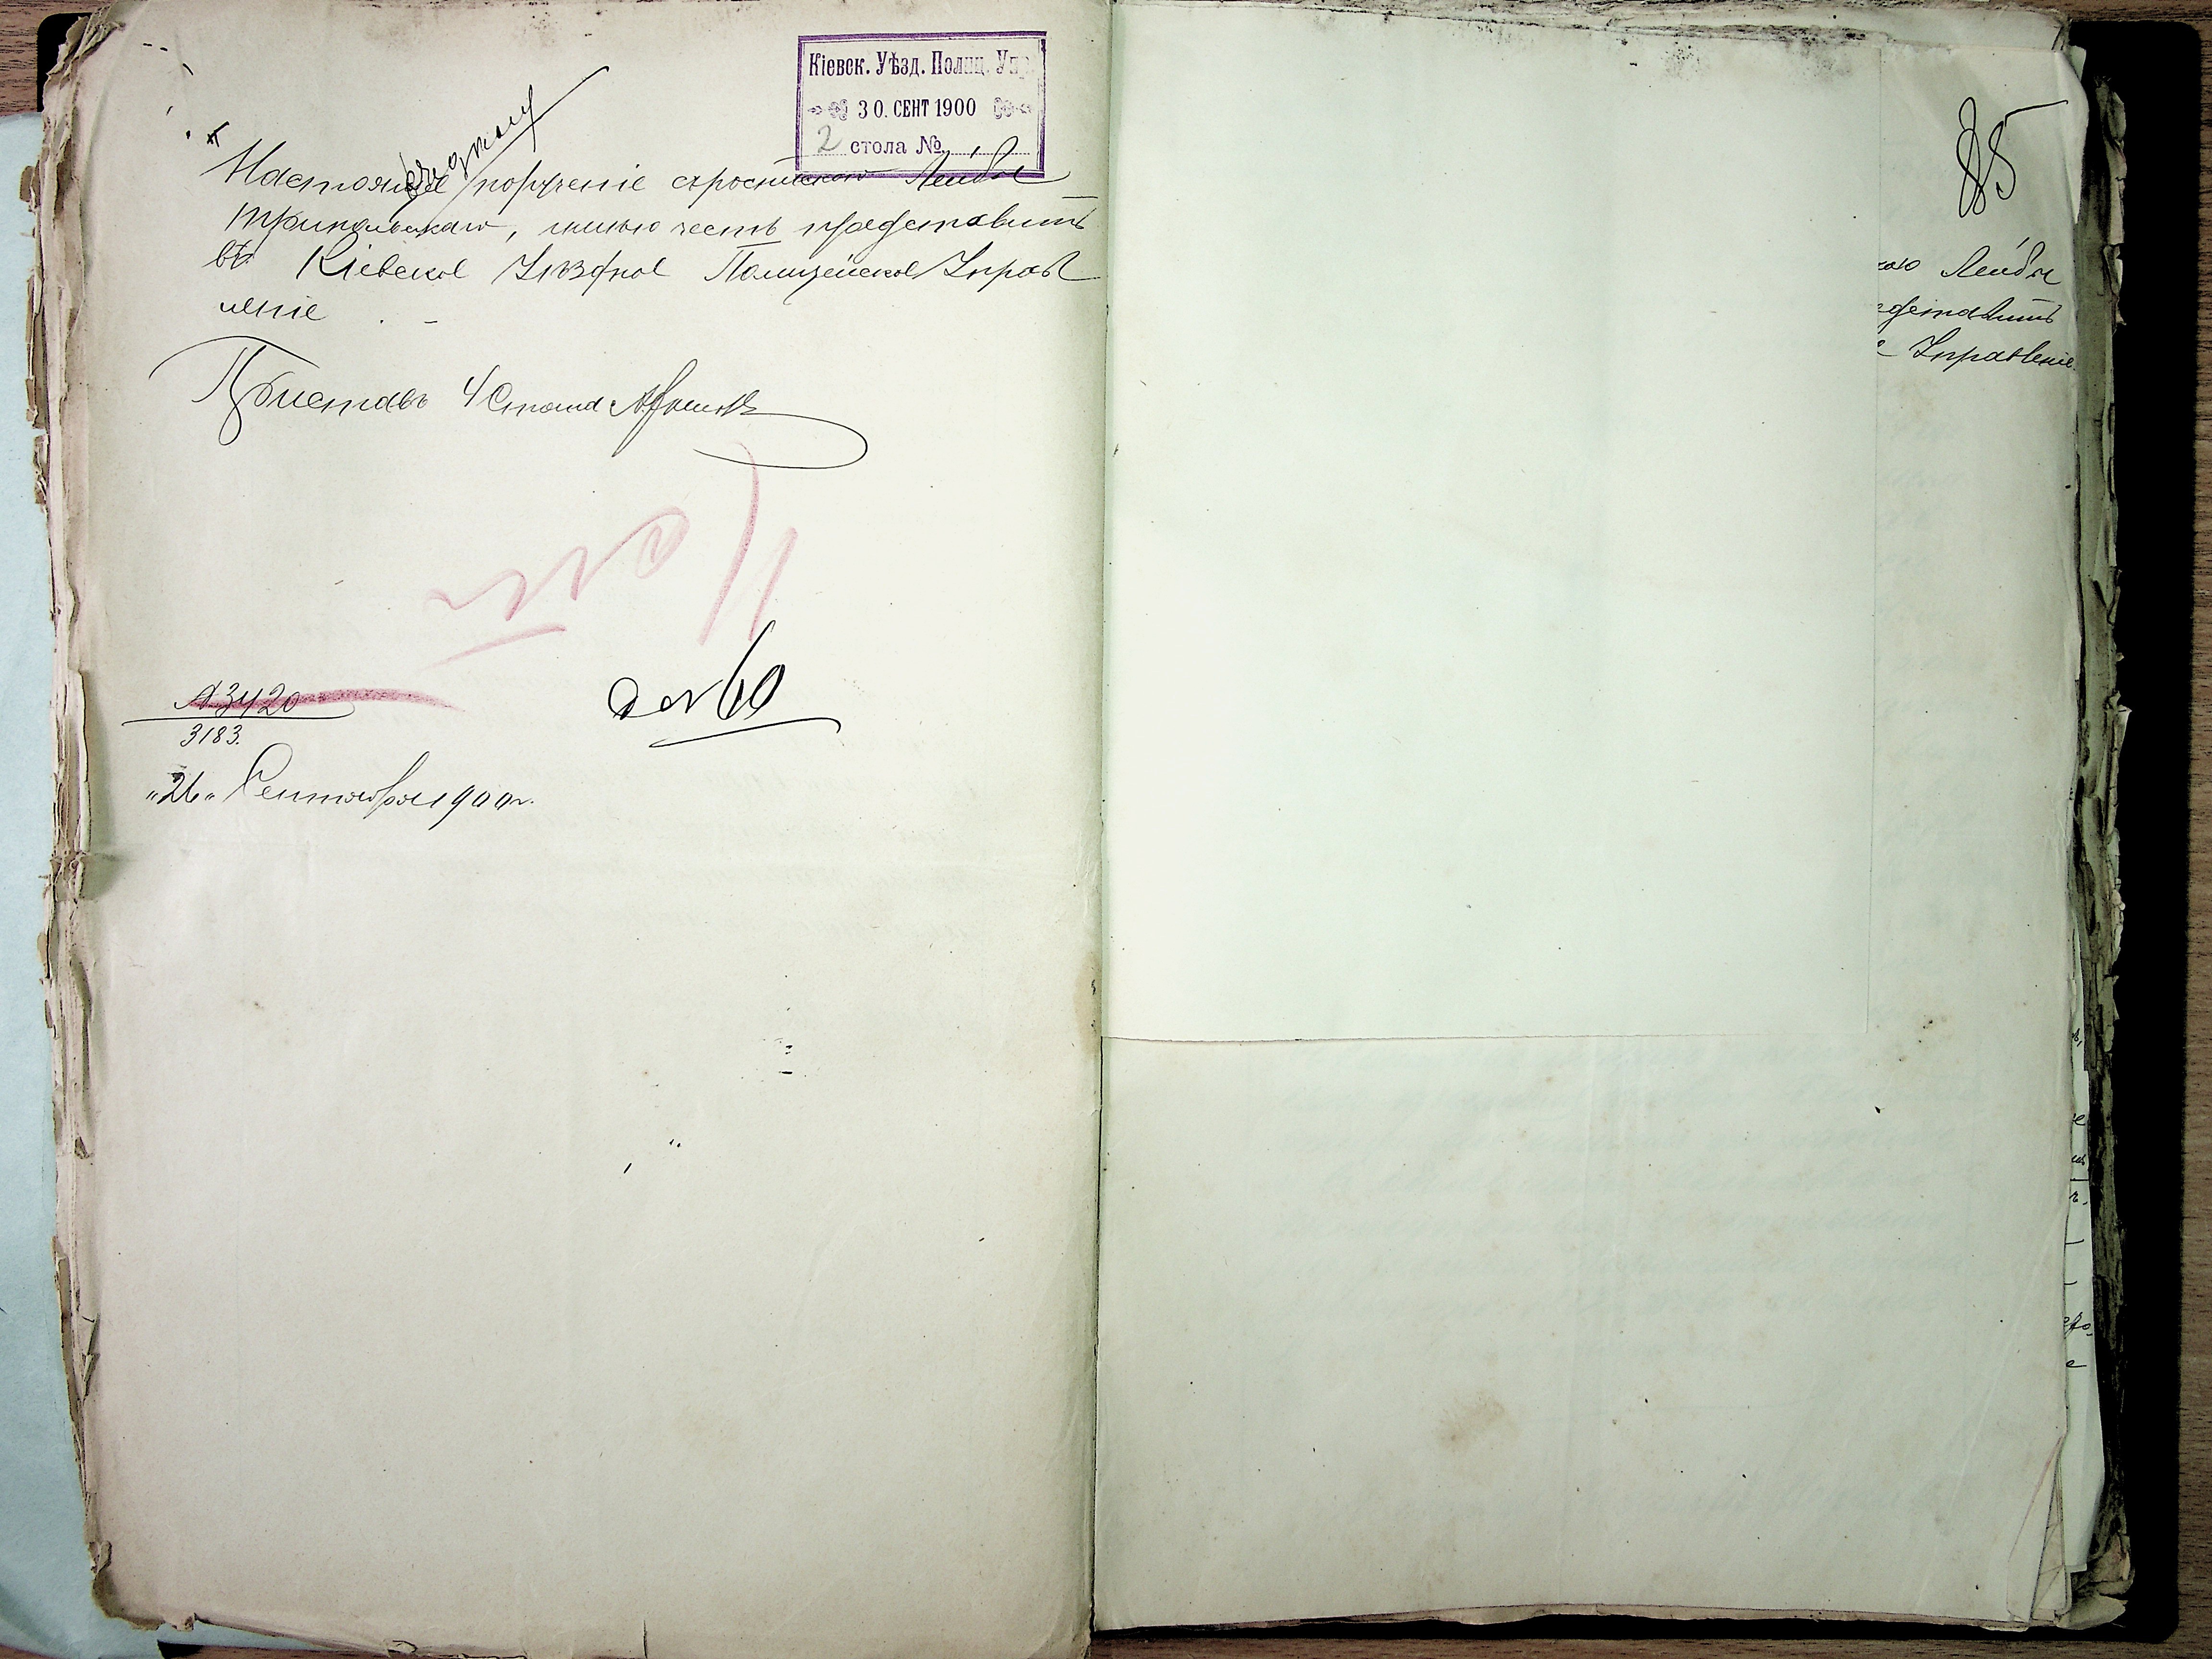 Кіевск. Уѣзд. Полиц. Упр.
30. СЕНТ 1900
2 стола №
Настоящее порученіе съ роспискою Лейбы
Трипольскаго, имѣю честь представить
въ Кіевское Уѣздное Полицейское Управ
леніе
Приставъ 4 Стана
№ 3420
3183.
"26" Сентября 1900 г.
85
кою Лейбы
едставить
е Управленіе.